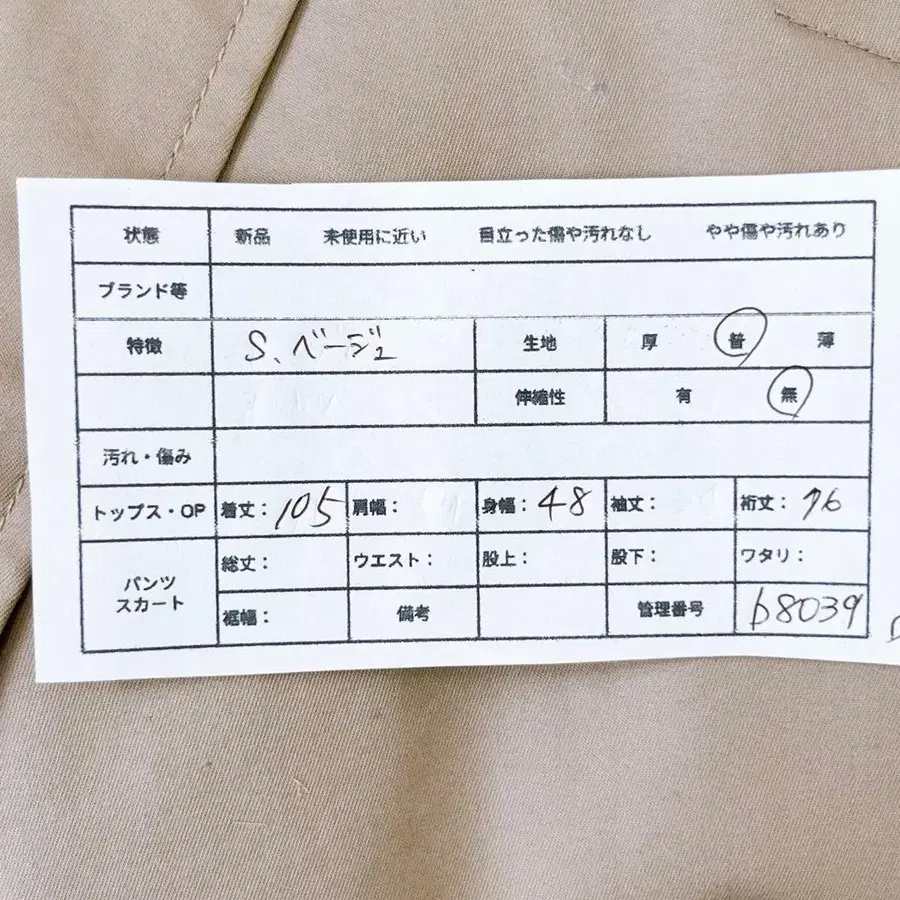 状態 新品 未使用に近い 目立った傷や汚れなし やや傷や汚れあり
ブランド等
特徴 S、ベージュ 生地 厚 普 薄
伸縮性 有 無
汚れ・傷み
トップス・OP 着丈：105 肩幅： 身幅：48 袖丈： 裄丈：76
パンツ スカート 総丈： ウエスト： 股上： 股下： ワタリ：
裾幅： 備考 管理番号 b8039